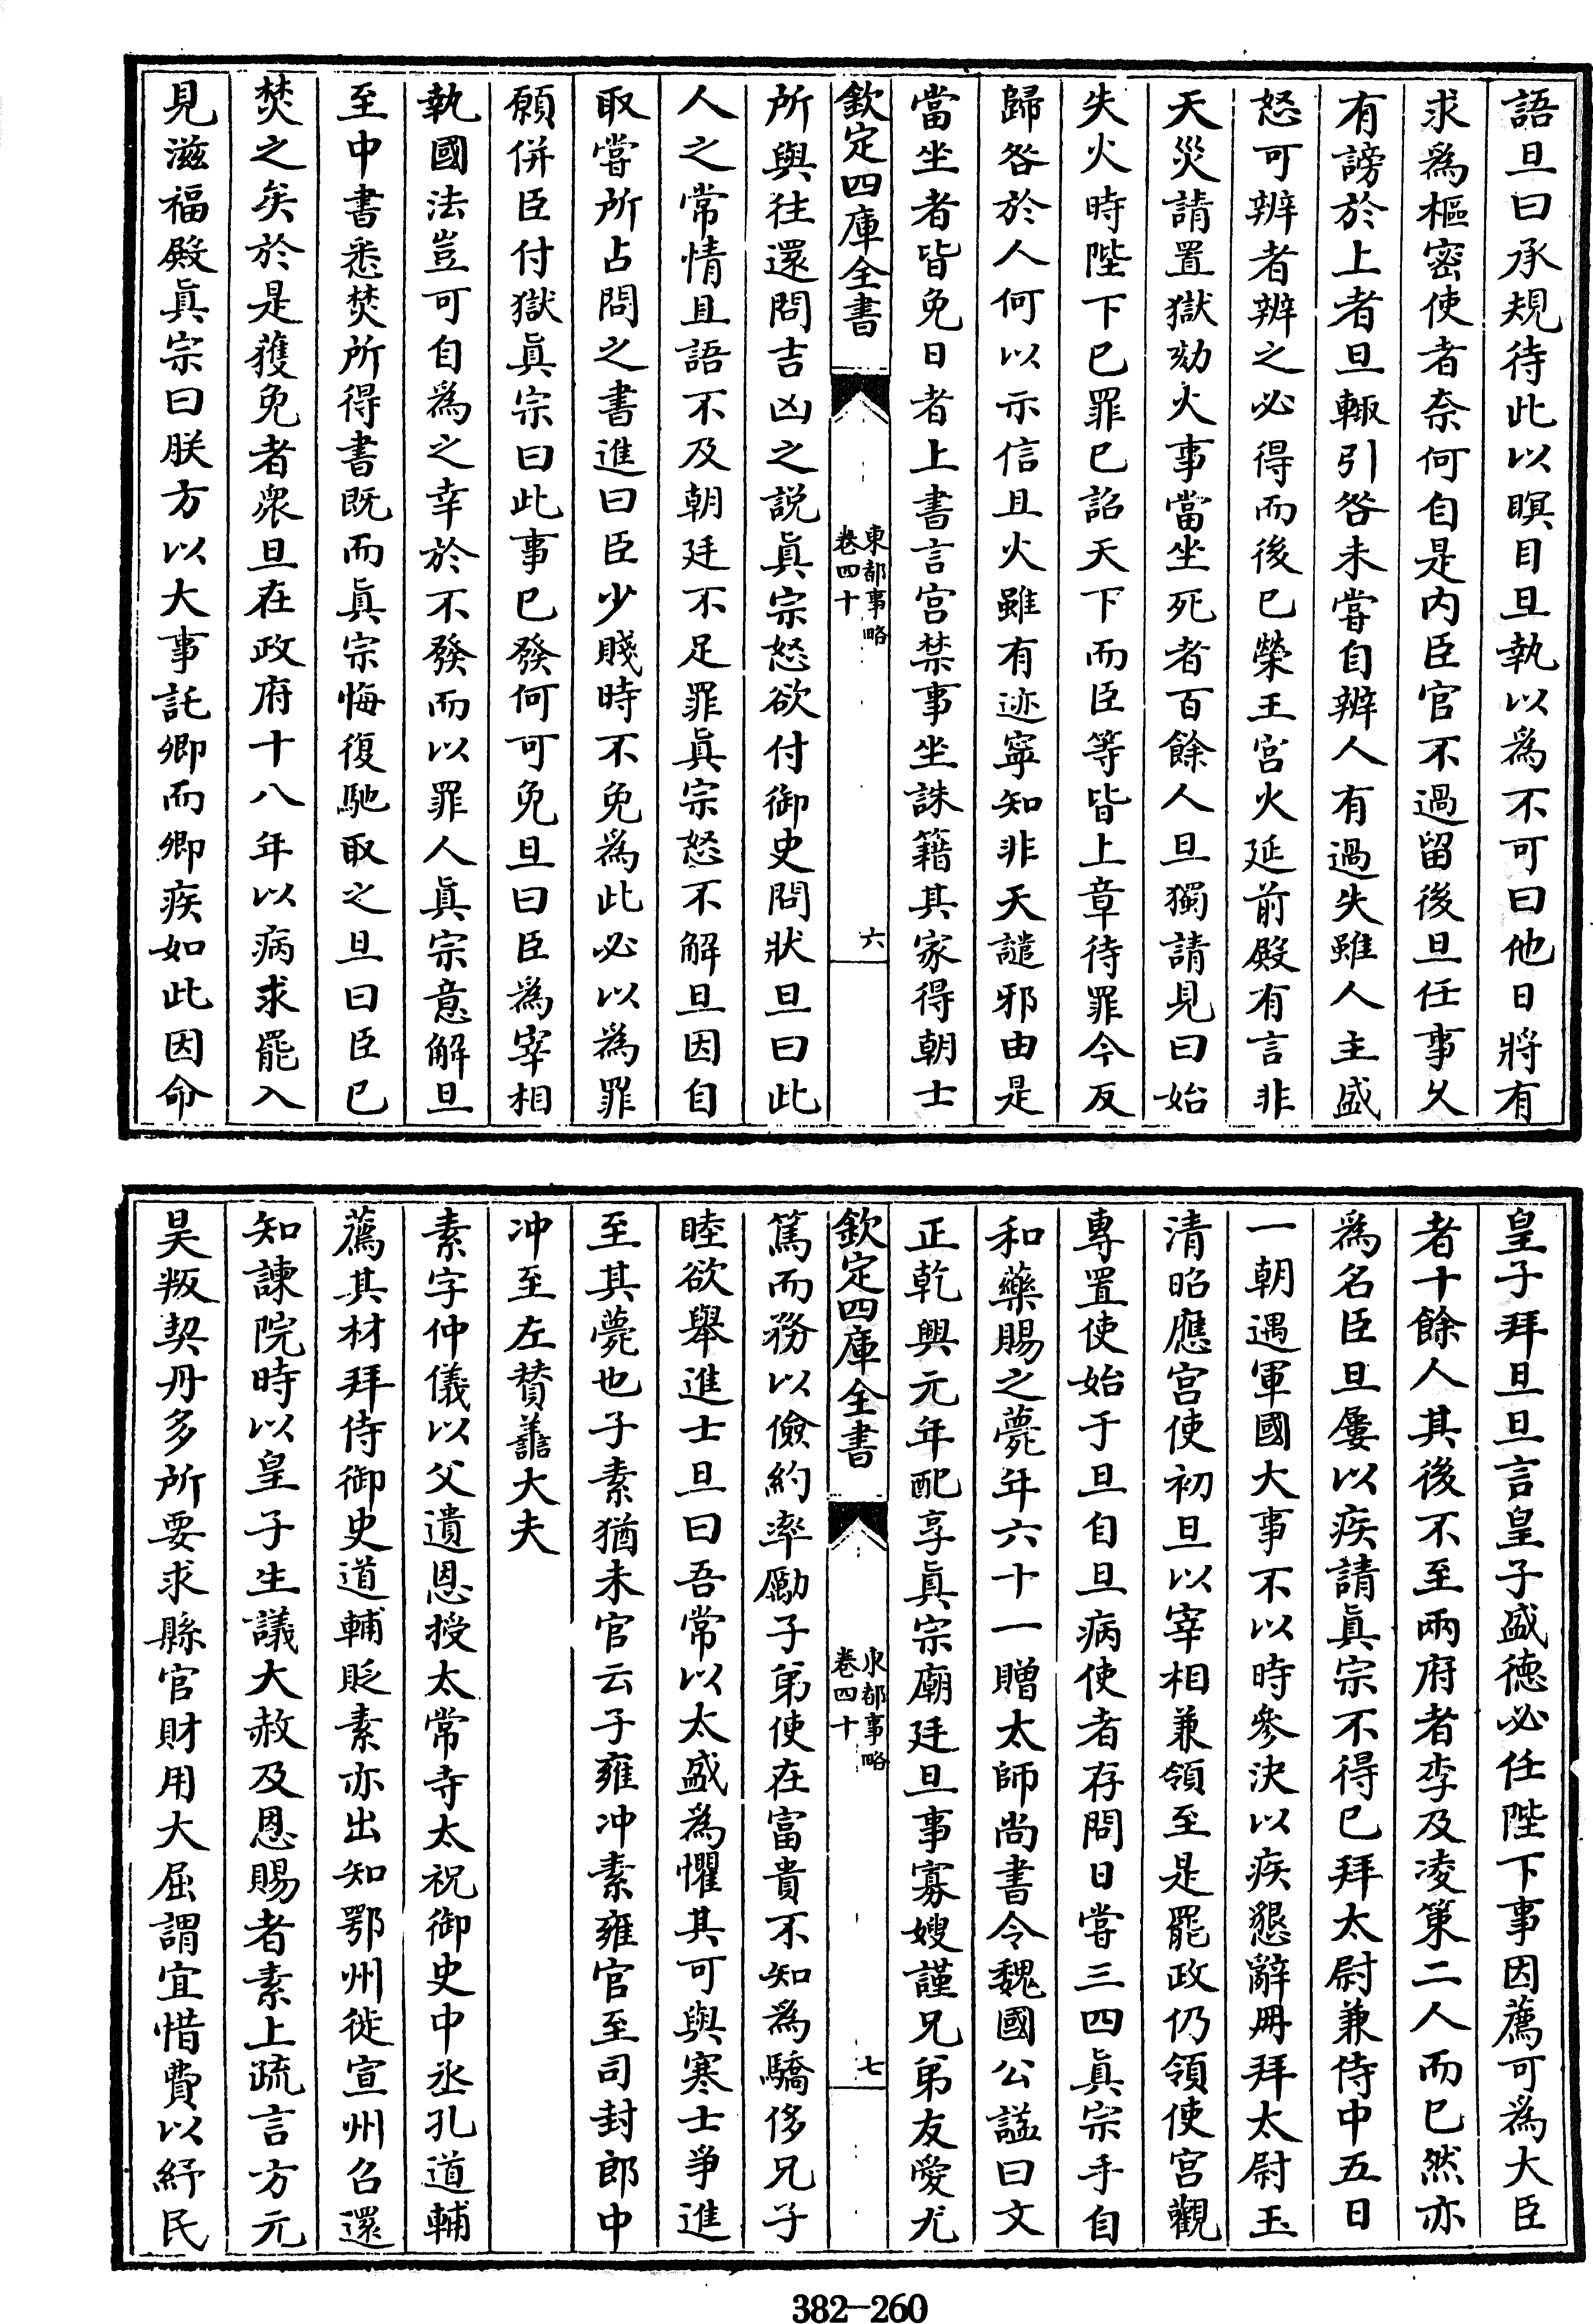 語旦曰承規待此以瞑目旦執以爲不可曰他日將有
求爲樞密使者奈何自是内臣官不過留後旦任事久
有謗於上者旦輙引咎未嘗自辨人有過失雖人主盛
怒可辨者辨之必得而後已榮王宫火延前殿有言非
天災請置獄劾火事當坐死者百餘人旦獨請見曰始
失火時陛下已罪已詔天下而臣等皆上章待罪今反
歸咎於人何以示信且火雖有迹寧知非天譴邪由是
當坐者皆免日者上書言宫禁事坐誅籍其家得朝士
欽定四庫全書
東都事略
卷四十
六
所與往還問吉凶之説眞宗怒欲付御史問狀旦曰此
人之常情且語不及朝廷不足罪眞宗怒不解旦因自
取嘗所占問之書進曰臣少賤時不免爲此必以爲罪
願併臣付獄眞宗曰此事已發何可免旦曰臣爲宰相
執國法豈可自爲之幸於不發而以罪人眞宗意解旦
至中書悉焚所得書既而眞宗悔復馳取之旦曰臣已
焚之矣於是獲免者衆旦在政府十八年以病求罷入
見滋福殿眞宗曰朕方以大事託卿而卿疾如此因命
皇子拜旦旦言皇子盛德必任陛下事因薦可爲大臣
者十餘人其後不至兩府者李及凌策二人而已然亦
爲名臣旦屢以疾請眞宗不得已拜太尉兼侍中五日
一朝遇軍國大事不以時參決以疾懇辭冊拜太尉玉
清昭應宫使初旦以宰相兼領至是罷政仍領使宫觀
專置使始于旦自旦病使者存問日嘗三四眞宗手自
和藥賜之薨年六十一贈太師尚書令魏國公謚曰文
正乾興元年配享眞宗廟廷旦事寡嫂謹兄弟友愛尤
欽定四庫全書
東都事略
卷四十
七
篤而務以儉約率勵子弟使在富貴不知爲驕侈兄子
睦欲舉進士旦曰吾常以太盛爲懼其可與寒士爭進
至其薨也子素猶未官云子雍冲素雍官至司封郎中
冲至左賛譱大夫
素字仲儀以父遺恩授太常寺太祝御史中丞孔道輔
薦其材拜侍御史道輔貶素亦出知鄂州徙宣州召還
知諫院時以皇子生議大赦及恩賜者素上疏言方元
昊叛契丹多所要求縣官財用大屈謂宜惜費以紓民
382-260